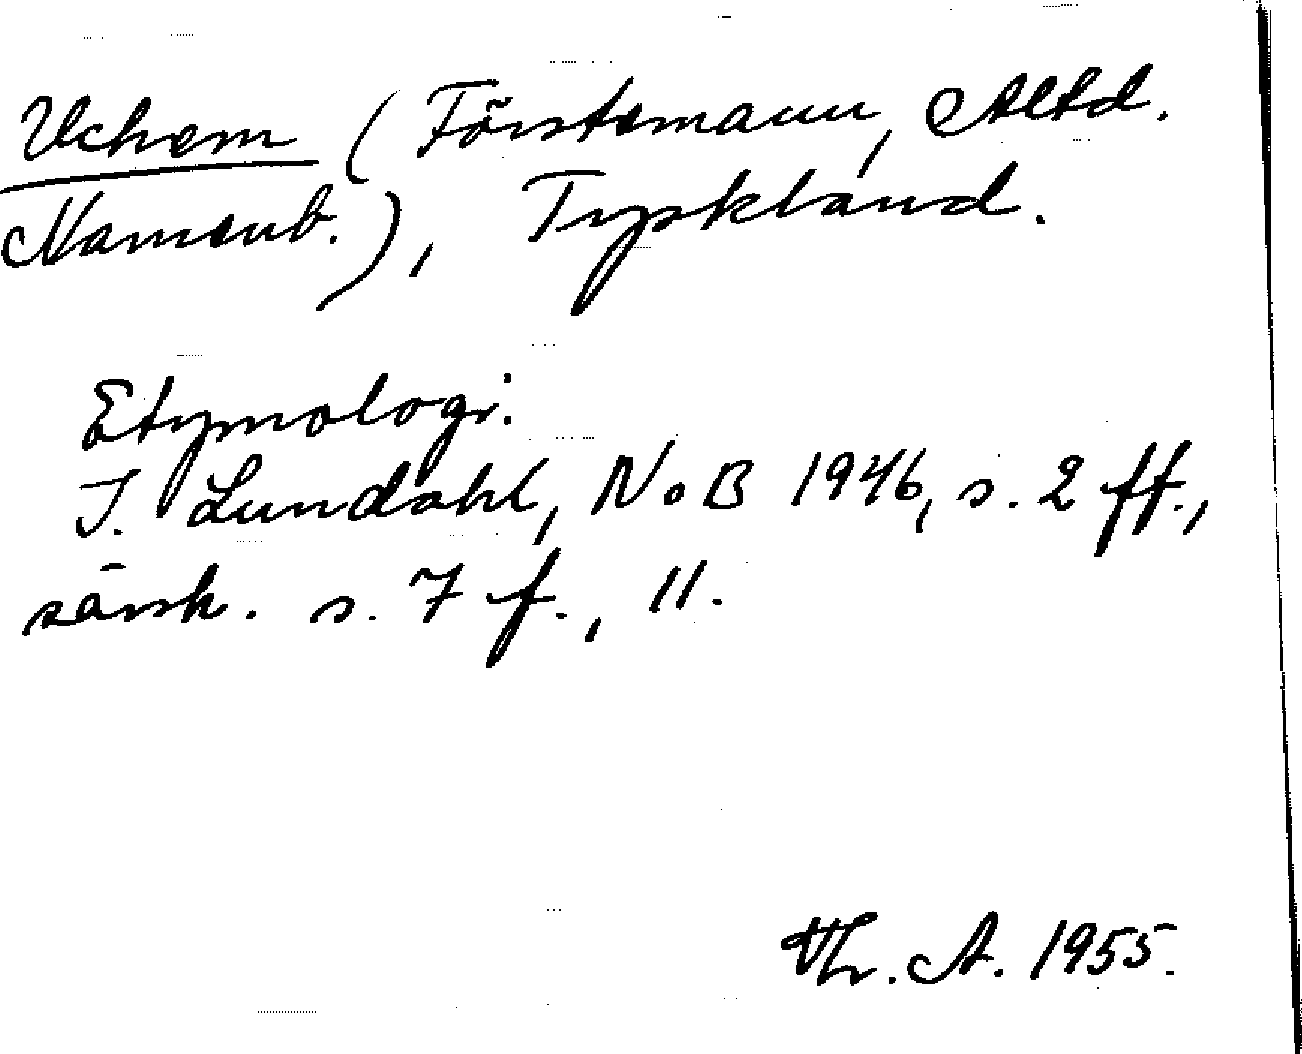 Uchem (Förstemann, Altd.
Namenb.), Tyskland.
Etymologi.
I. Lundahl, NoB 1946, s. 2 ff.,
särsk. s. 7 f., 11.
Th. A. 1955.